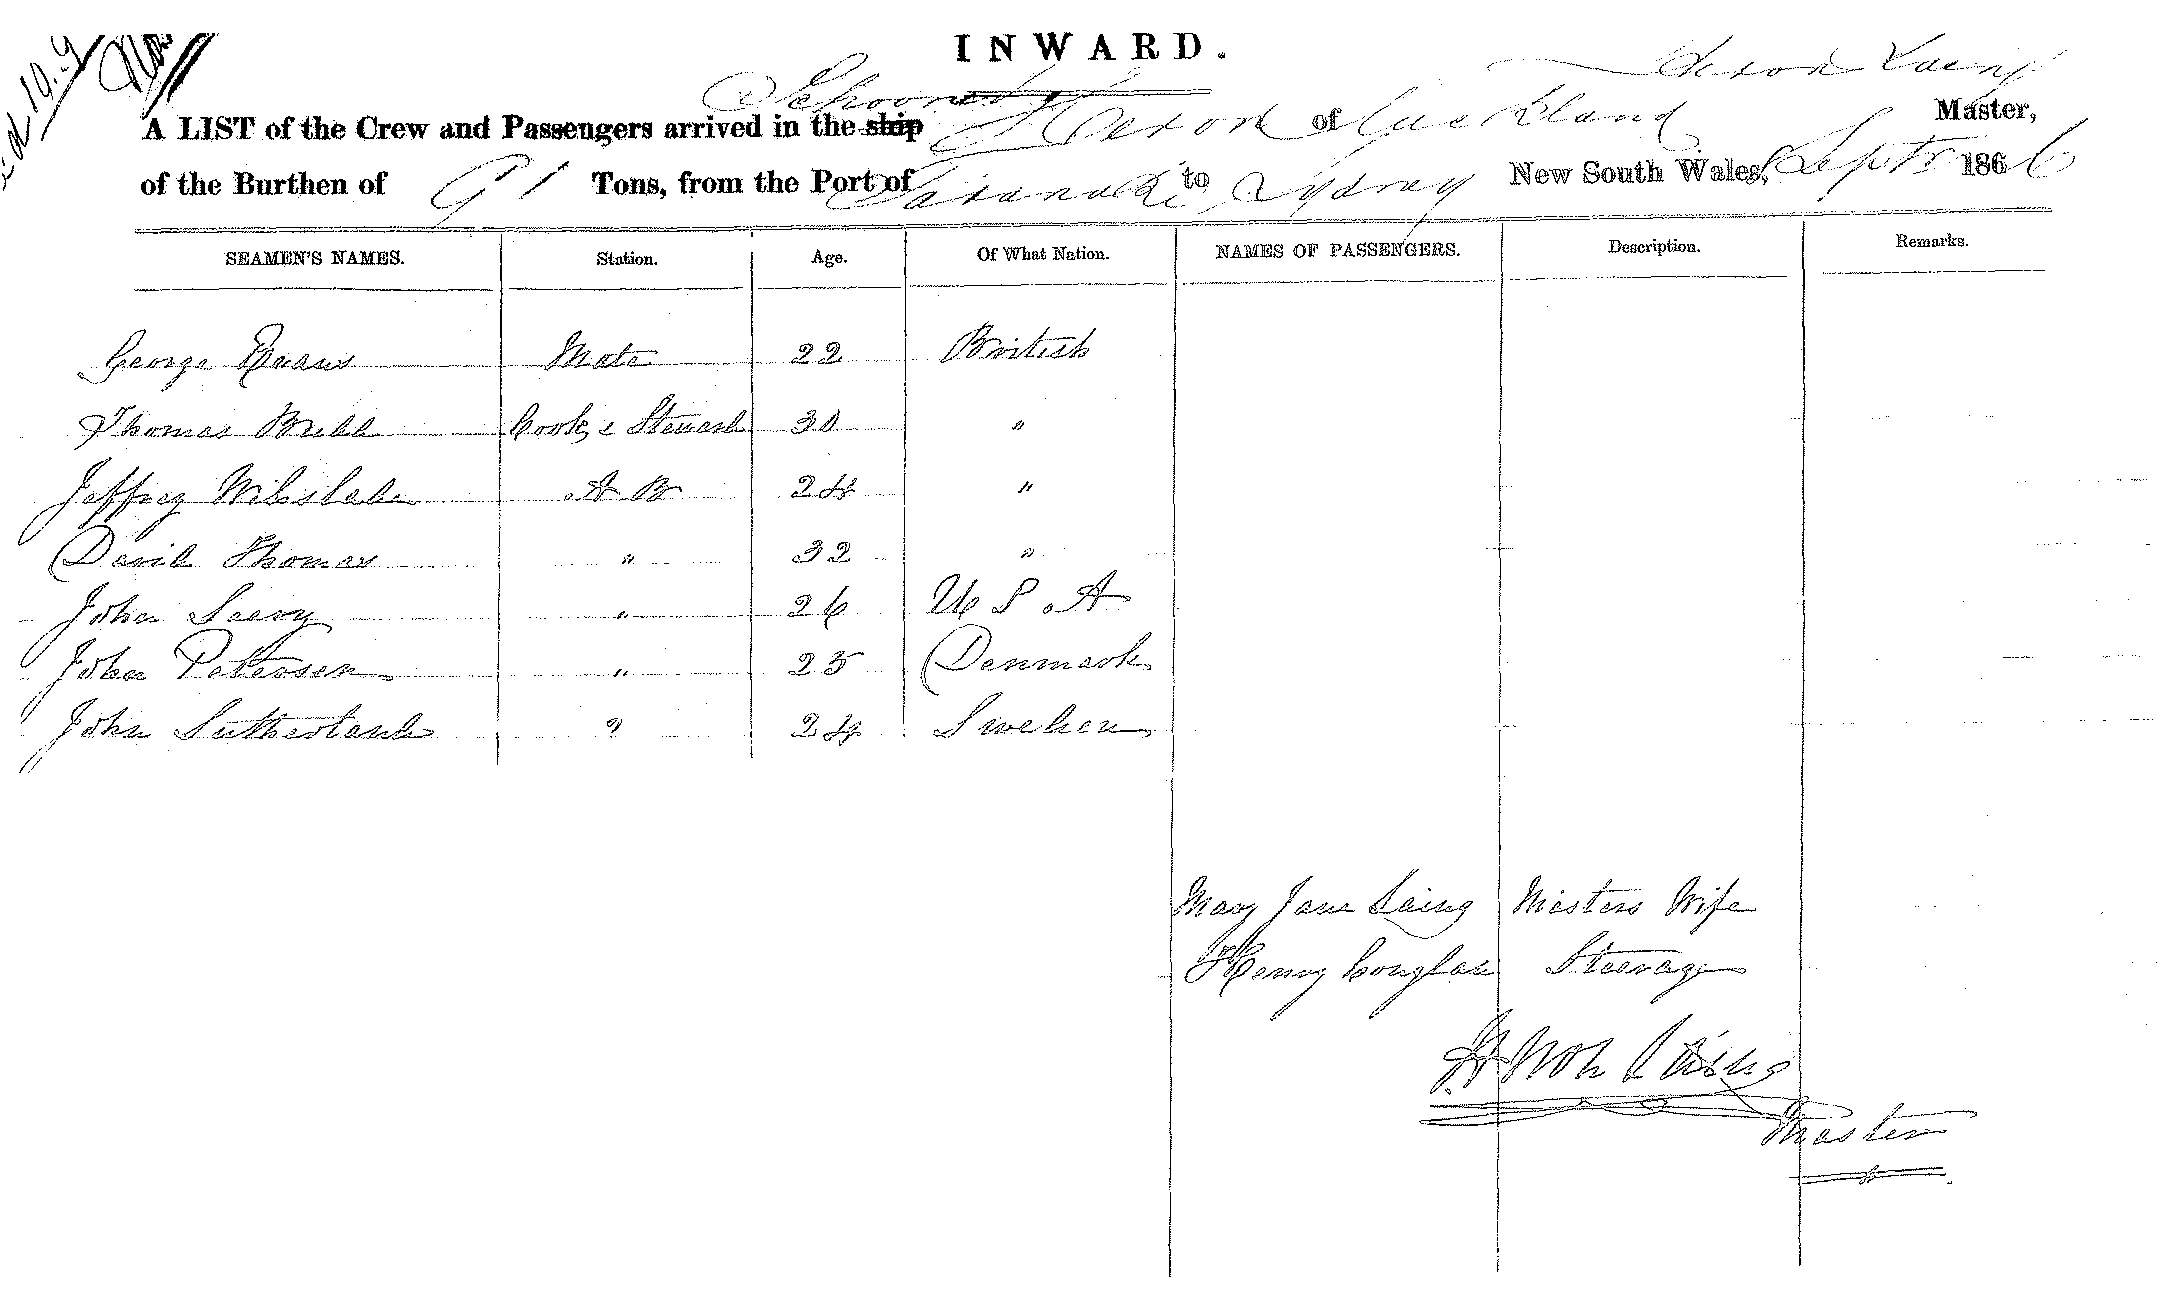 INWARD.
Heron Laing
Schooner
A LIST of the Crew and Passengers arrived in the ship Heron of Auckland Master,
of the Burthen of 91 Tons, from the Port of Taranaki to Sydney New South Wales, Septr 1866
SEAMEN'S NAMES. Station. Age. Of What Nation. NAMES OF PASSENGERS. Description. Remarks.
George Evans Mate 22 British
Thomas Cook & Steward 30 "
Jeffrey A B 24 "
David Thomas " 32 "
John " 26 U S A
John Petersen " 25 Denmark
John Sutherland " 24 Sweden
Mary Jane Laing Masters Wife
Henry Steerage
Laing
Master